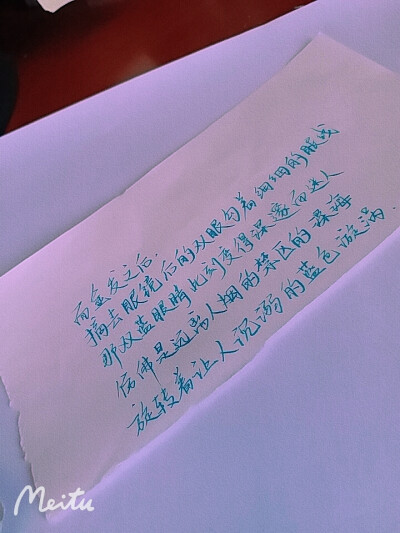 而金发之后,
摘去眼镜后的双眼勾着细细的眼线
那双蓝眼睛此刻变得深邃而迷人
仿佛是远离人烟的禁区的深海
旋转着让人沉溺的蓝色漩涡.
Meitu